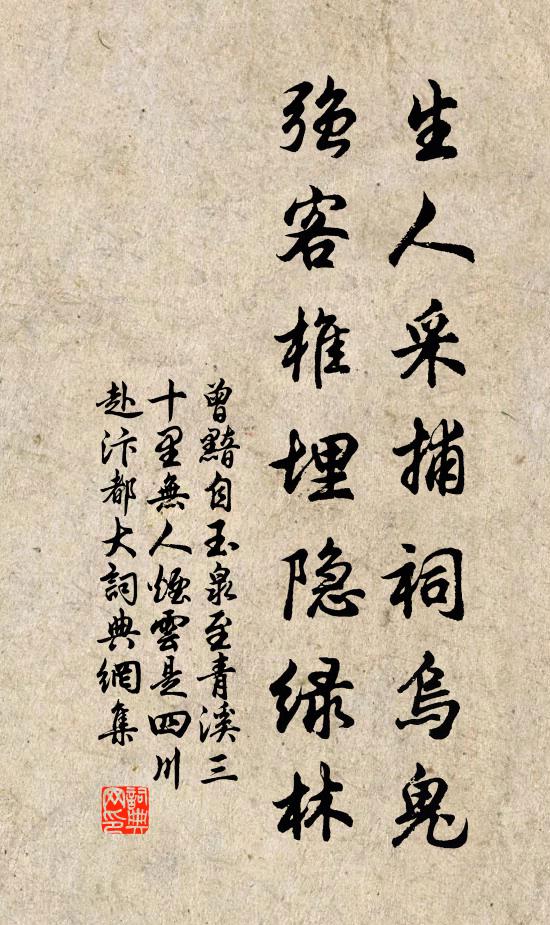 生人采捕祠烏鬼
強客椎埋隐緑林
曾黯自玉泉至青溪三
十里無人煙雲是四川
赴汴都大詞典網集
詞典網印